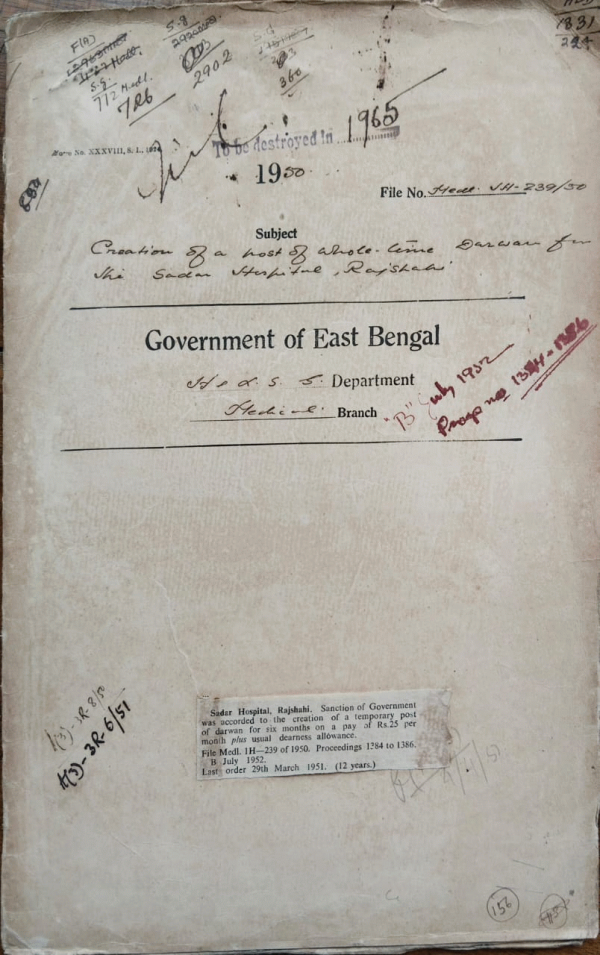 F(A)
S.G.
2902
S.G.
712 Medl.
726
360
1831
Form No. XXXVIII, S. I., 
To be destroyed in 1965
1950
File No. Medl. 1H-239/50
Subject
Creation of a post of whole-time Darwan for
the Sadar Hospital, Rajshahi
Government of East Bengal
H & L. S. G. Department
Medical Branch
"B" July 1952
Progs no 1384-1386
A(3)-3R-8/50
A(3)-3R-6/51
Sadar Hospital, Rajshahi. Sanction of Government
was accorded to the creation of a temporary post
of darwan for six months on a pay of Rs.25 per
month plus usual dearness allowance.
File Medl. 1H—239 of 1950. Proceedings 1284 to 1386.
B July 1952.
Last order 29th March 1951. (12 years.)
156